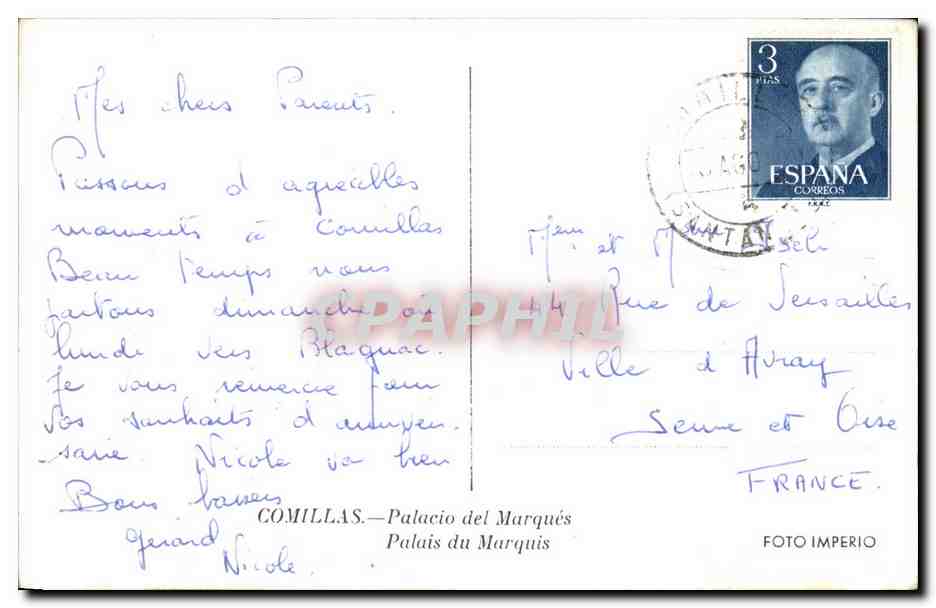 Mes chers Parents.
Passons d'agréables
moments à Comillas
Beau temps nous
partons dimanche ou
lundi vers Blagnac.
Je vous remercie pour
vos souhaits d'anniver-
saire. Nicole va bien
Bons baisers
Gérard
Nicole.
COMILLAS.—Palacio del Marqués
Palais du Marquis
3
PTAS
ESPAÑA
CORREOS
F.N.M.T.
AGO
SANTA
et M
44 Rue de Versailles
Ville d'Avray
Seine et Oise
FRANCE.
FOTO IMPERIO
CPAPHIL